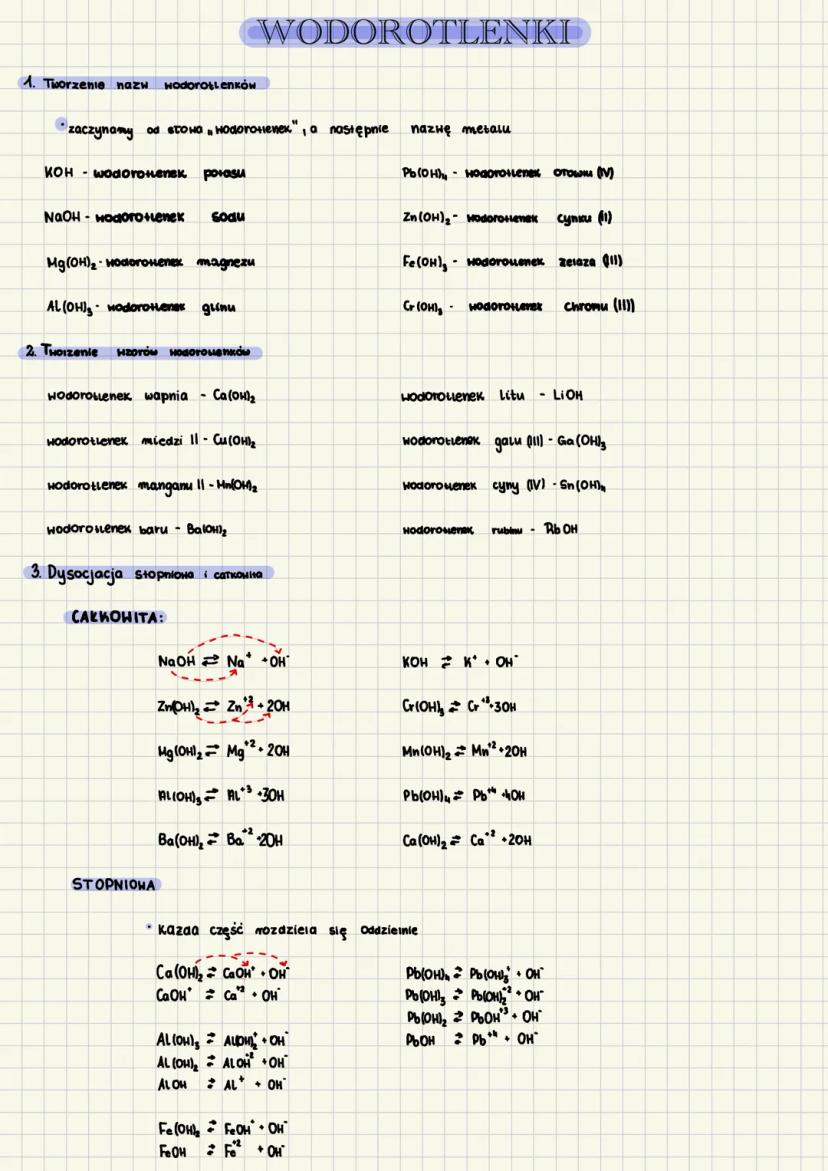 WODOROTLENKI
1. Tworzenie nazw wodorotlenków
• zaczynamy od słowa „wodorotlenek", a następnie nazwę metalu
KOH - wodorotlenek potasu
Pb(OH)₄ - wodorotlenek ołowiu (IV)
NaOH - wodorotlenek sodu
Zn(OH)₂ - wodorotlenek cynku (II)
Mg(OH)₂ - wodorotlenek magnezu
Fe(OH)₃ - wodorotlenek żelaza (III)
Al(OH)₃ - wodorotlenek glinu
Cr(OH)₃ - wodorotlenek chromu (III)
2. Tworzenie wzorów wodorotlenków
wodorotlenek wapnia - Ca(OH)₂
wodorotlenek litu - LiOH
wodorotlenek miedzi II - Cu(OH)₂
wodorotlenek galu (III) - Ga(OH)₃
wodorotlenek manganu II - Mn(OH)₂
wodorotlenek cyny (IV) - Sn(OH)₄
wodorotlenek baru - Ba(OH)₂
wodorotlenek rubinu - RbOH
3. Dysocjacja stopniowa i całkowita
CAŁKOWITA:
NaOH ⇄ Na⁺ + OH⁻
KOH ⇄ K⁺ + OH⁻
Zn(OH)₂ ⇄ Zn⁺² + 2OH
Cr(OH)₃ ⇄ Cr⁺³ + 3OH
Mg(OH)₂ ⇄ Mg⁺² + 2OH
Mn(OH)₂ ⇄ Mn⁺² + 2OH
Al(OH)₃ ⇄ Al⁺³ + 3OH
Pb(OH)₄ ⇄ Pb⁺⁴ + 4OH
Ba(OH)₂ ⇄ Ba⁺² + 2OH
Ca(OH)₂ ⇄ Ca⁺² + 2OH
STOPNIOWA
• Każda część rozdziela się oddzielnie
Ca(OH)₂ ⇄ CaOH⁺ + OH⁻
CaOH⁺ ⇄ Ca⁺² + OH⁻
Al(OH)₃ ⇄ Al(OH)₂⁺ + OH⁻
Al(OH)₂ ⇄ AlOH⁺² + OH⁻
AlOH ⇄ Al⁺ + OH⁻
Fe(OH)₂ ⇄ FeOH⁺ + OH⁻
FeOH ⇄ Fe⁺² + OH⁻
Pb(OH)₄ ⇄ Pb(OH)₃⁺ + OH⁻
Pb(OH)₃ ⇄ Pb(OH)₂⁺² + OH⁻
Pb(OH)₂ ⇄ PbOH⁺³ + OH⁻
PbOH ⇄ Pb⁺⁴ + OH⁻